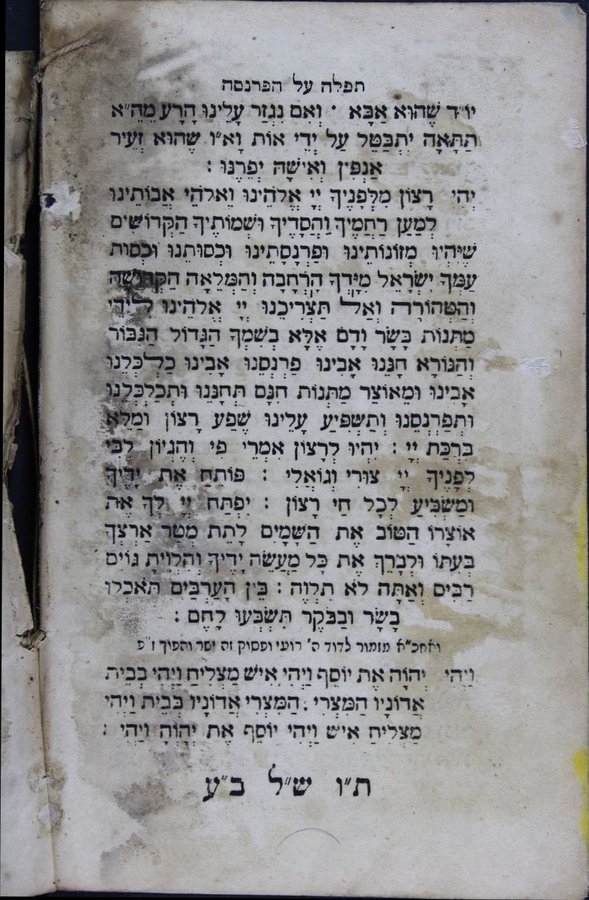 תפלה על הפרנסה
יו״ד שֶׁהוּא אַבָּא ׳ וְאִם נִגְזַר עָלֵינוּ הָרַע מֵהֵ״א
תַּתָּאָה יִתְבַּטֵּל עַל יְדֵי אוֹת וָא״ו שֶׁהוּא זְעֵיר
אַנְפִּין וְאִישָׁהּ יְפֵרֶנּוּ :
יְהִי רָצוֹן מִלְּפָנֶיךָ יְיָ אֱלֹהֵינוּ וֵאלֹהֵי אֲבוֹתֵינוּ
לְמַעַן רַחֲמֶיךָ וַחֲסָדֶיךָ וּשְׁמוֹתֶיךָ הַקְּדוֹשִׁים
שֶׁיִּהְיוּ מְזוֹנוֹתֵינוּ וּפַרְנָסָתֵינוּ וּכְסוּתֵנוּ וּכְסוּת
עַמְּךָ יִשְׂרָאֵל מִיָּדְךָ הָרְחָבָה וְהַמְּלֵאָה הַקְּדוֹשָׁה
וְהַטְּהוֹרָה וְאַל תַּצְרִיכֵנוּ יְיָ אֱלֹהֵינוּ לִידֵי
מַתְּנוֹת בָּשָׂר וָדָם אֶלָּא בְשִׁמְךָ הַגָּדוֹל הַגִּבּוֹר
וְהַנּוֹרָא חָנֵּנוּ אָבִינוּ פַּרְנְסֵנוּ אָבִינוּ כַּלְכְּלֵנוּ
אָבִינוּ וּמֵאוֹצַר מַתְּנוֹת חִנָּם תְּחָנֵּנוּ וּתְכַלְכְּלֵנוּ
וּתְפַרְנְסֵנוּ וְתַשְׁפִּיעַ עָלֵינוּ שֶׁפַע רָצוֹן וּמָלֵא
בִּרְכַּת יְיָ : יִהְיוּ לְרָצוֹן אִמְרֵי פִי וְהֶגְיוֹן לִבִּי
לְפָנֶיךָ יְיָ צוּרִי וְגוֹאֲלִי : פּוֹתֵחַ אֶת יָדֶיךָ
וּמַשְׂבִּיעַ לְכָל חַי רָצוֹן : יִפְתַּח יְיָ לְךָ אֶת
אוֹצָרוֹ הַטּוֹב אֶת הַשָּׁמַיִם לָתֵת מְטַר אַרְצְךָ
בְּעִתּוֹ וּלְבָרֵךְ אֶת כָּל מַעֲשֵׂה יָדֶיךָ וְהִלְוִיתָ גּוֹיִם
רַבִּים וְאַתָּה לֹא תִלְוֶה : בֵּין הָעַרְבַּיִם תֹּאכְלוּ
בָשָׂר וּבַבֹּקֶר תִּשְׂבְּעוּ לָחֶם :
ואחכ״א מזמור לדוד ה׳ רועי ופסוק זה ישר והפיך ז״פ
וַיְהִי יְהֹוָה אֶת יוֹסֵף וַיְהִי אִישׁ מַצְלִיחַ וַיְהִי בְּבֵית
אֲדוֹנָיו הַמִּצְרִי . הַמִּצְרִי אֲדוֹנָיו בְּבֵית וַיְהִי
מַצְלִיחַ אִישׁ וַיְהִי יוֹסֵף אֶת יְהֹוָה וַיְהִי :
ת״ו ש״ל ב״ע